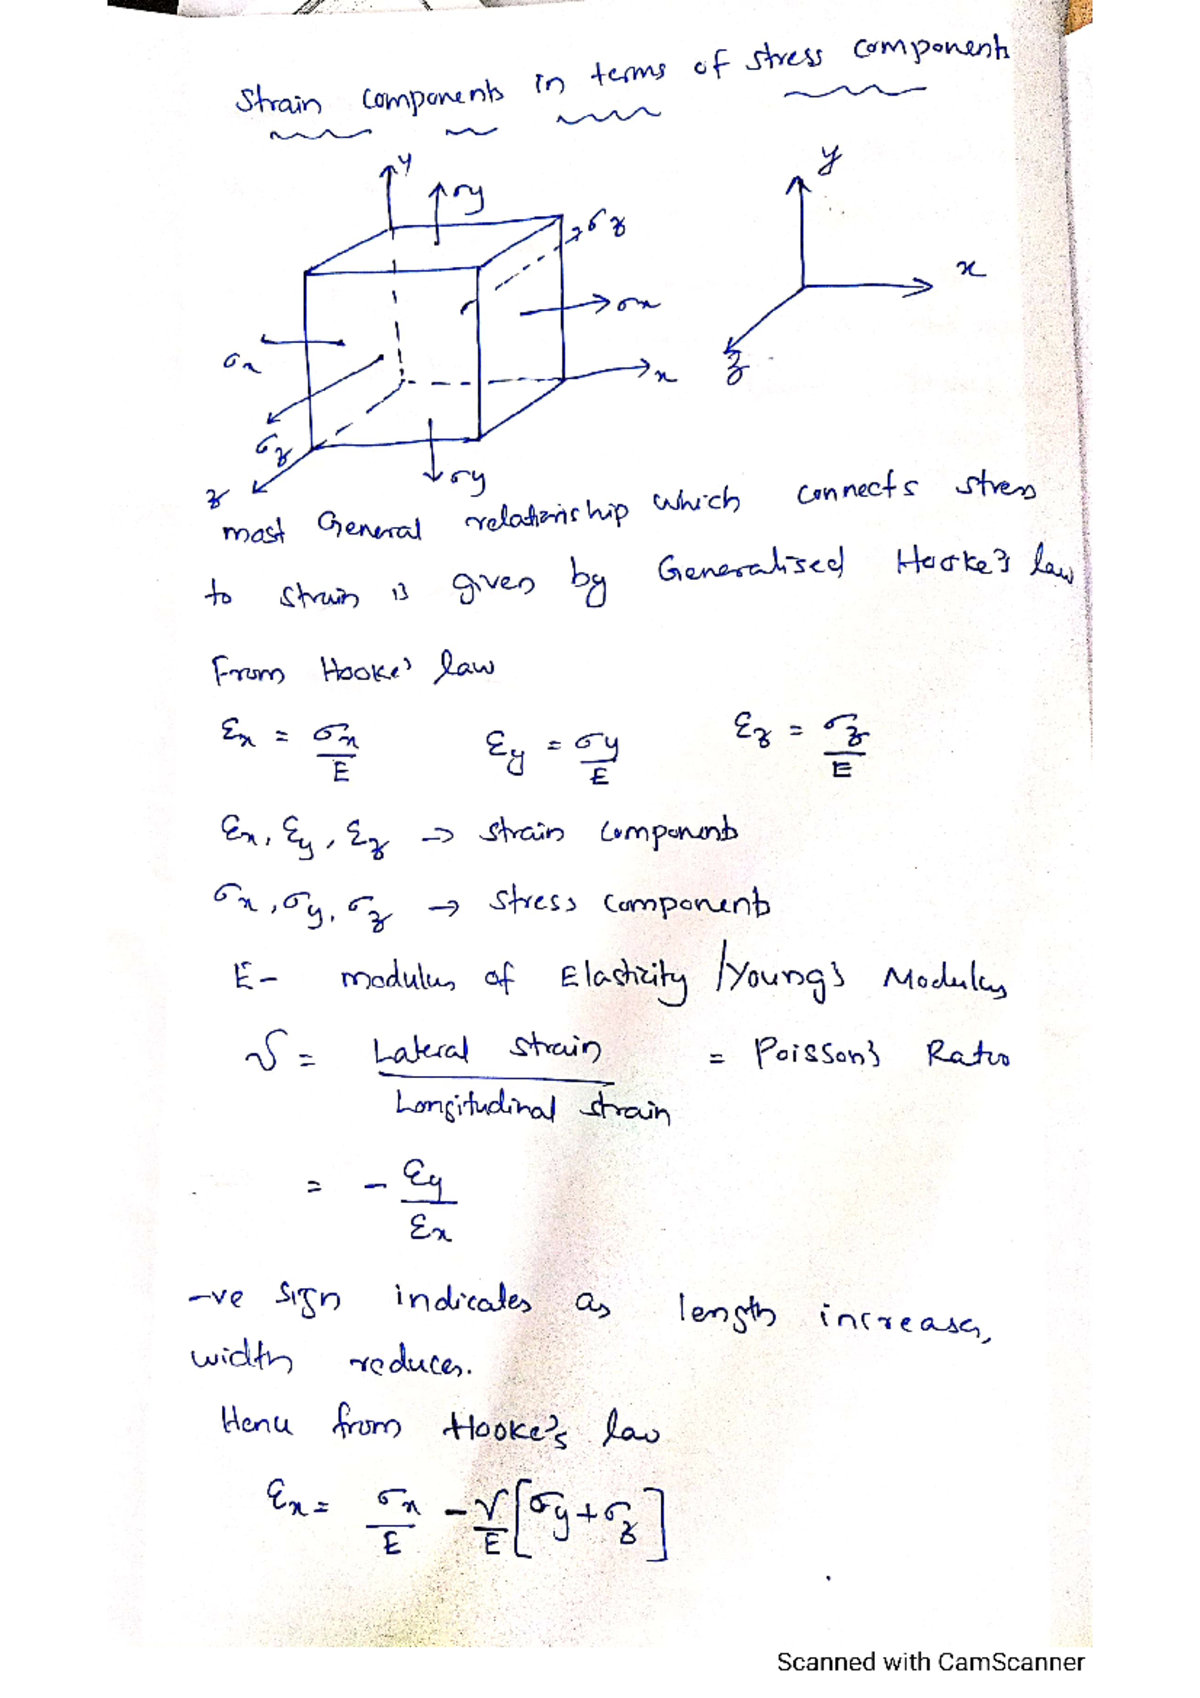 Strain components in terms of stress components
y
σy
σz
σx
x
σx
σz
z
σy
y
x
z
most General relationship which connects stress
to strain is given by Generalised Hooke's law
From Hooke's law
εx = σx/E εy = σy/E εz = σz/E
εx, εy, εz → strain components
σx, σy, σz → stress components
E - modulus of Elasticity /Young's Modulus
ν = Lateral strain / Longitudinal strain = Poisson's Ratio
= - εy/εx
-ve sign indicates as length increases,
width reduces.
Hence from Hooke's law
εx = σx/E - ν/E [σy + σz]
Scanned with CamScanner